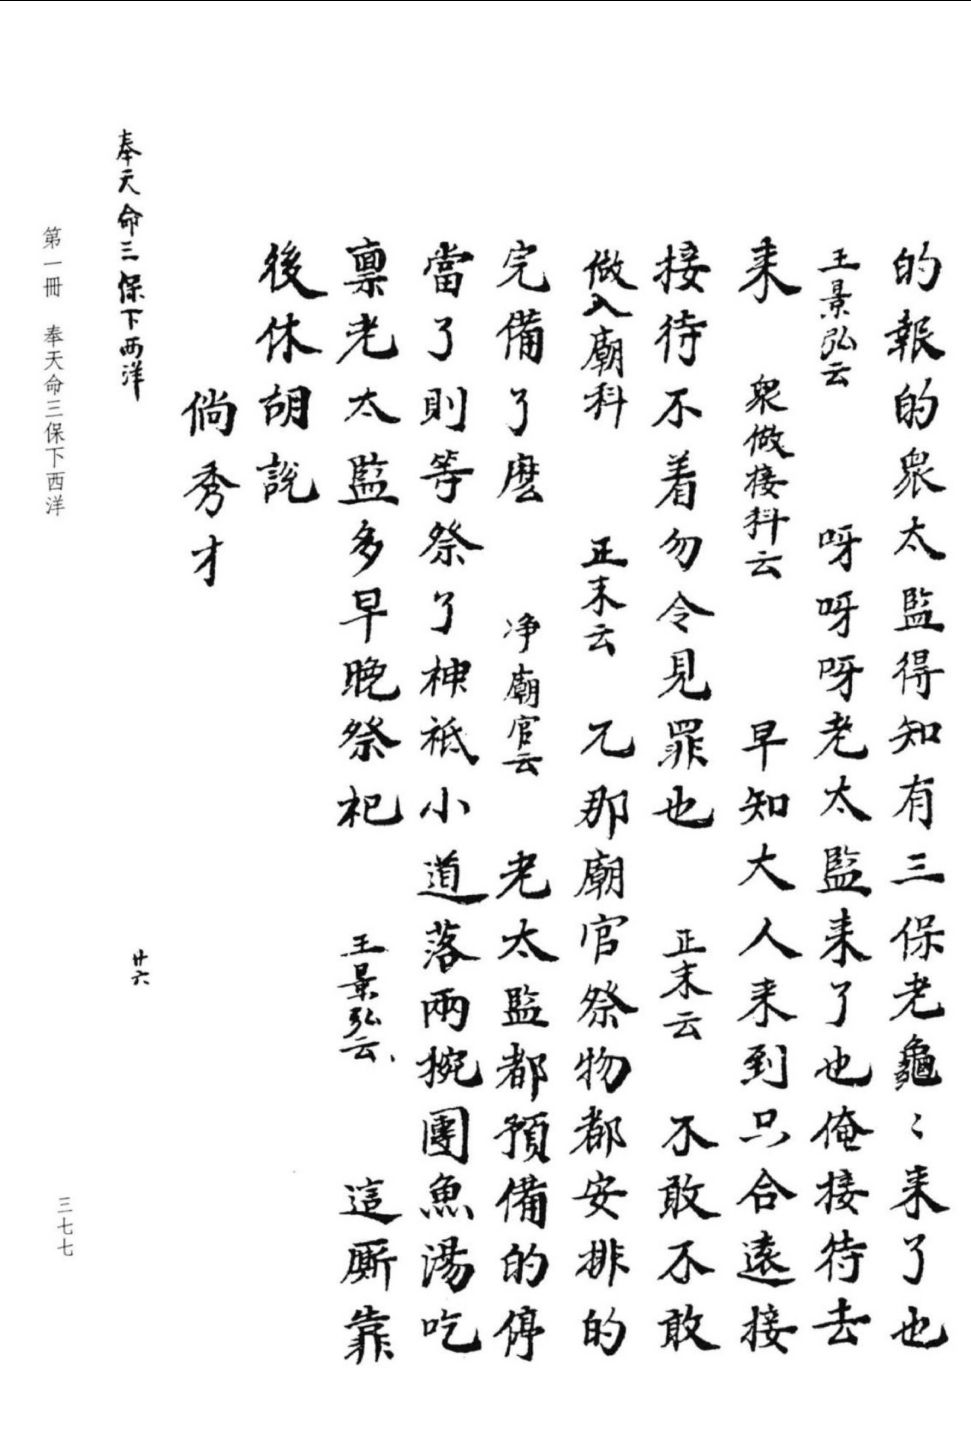 的報的衆太監得知有三保老龜〻来了也
王景弘云 呀呀呀老太監来了也俺接待去
来 衆做接科云 早知大人来到只合遠接
接待不着勿令見罪也 正末云 不敢不敢
做入廟科 正末云 兀那廟官祭物都安排的
完備了麽 净廟官云 老太監都預備的停
當了則等祭了神祇小道落兩椀團魚湯吃
禀老太監多早晚祭祀 王景弘云 這厮靠
後休胡説
倘秀才
奉天命三保下西洋 廿六
第一冊 奉天命三保下西洋 三七七